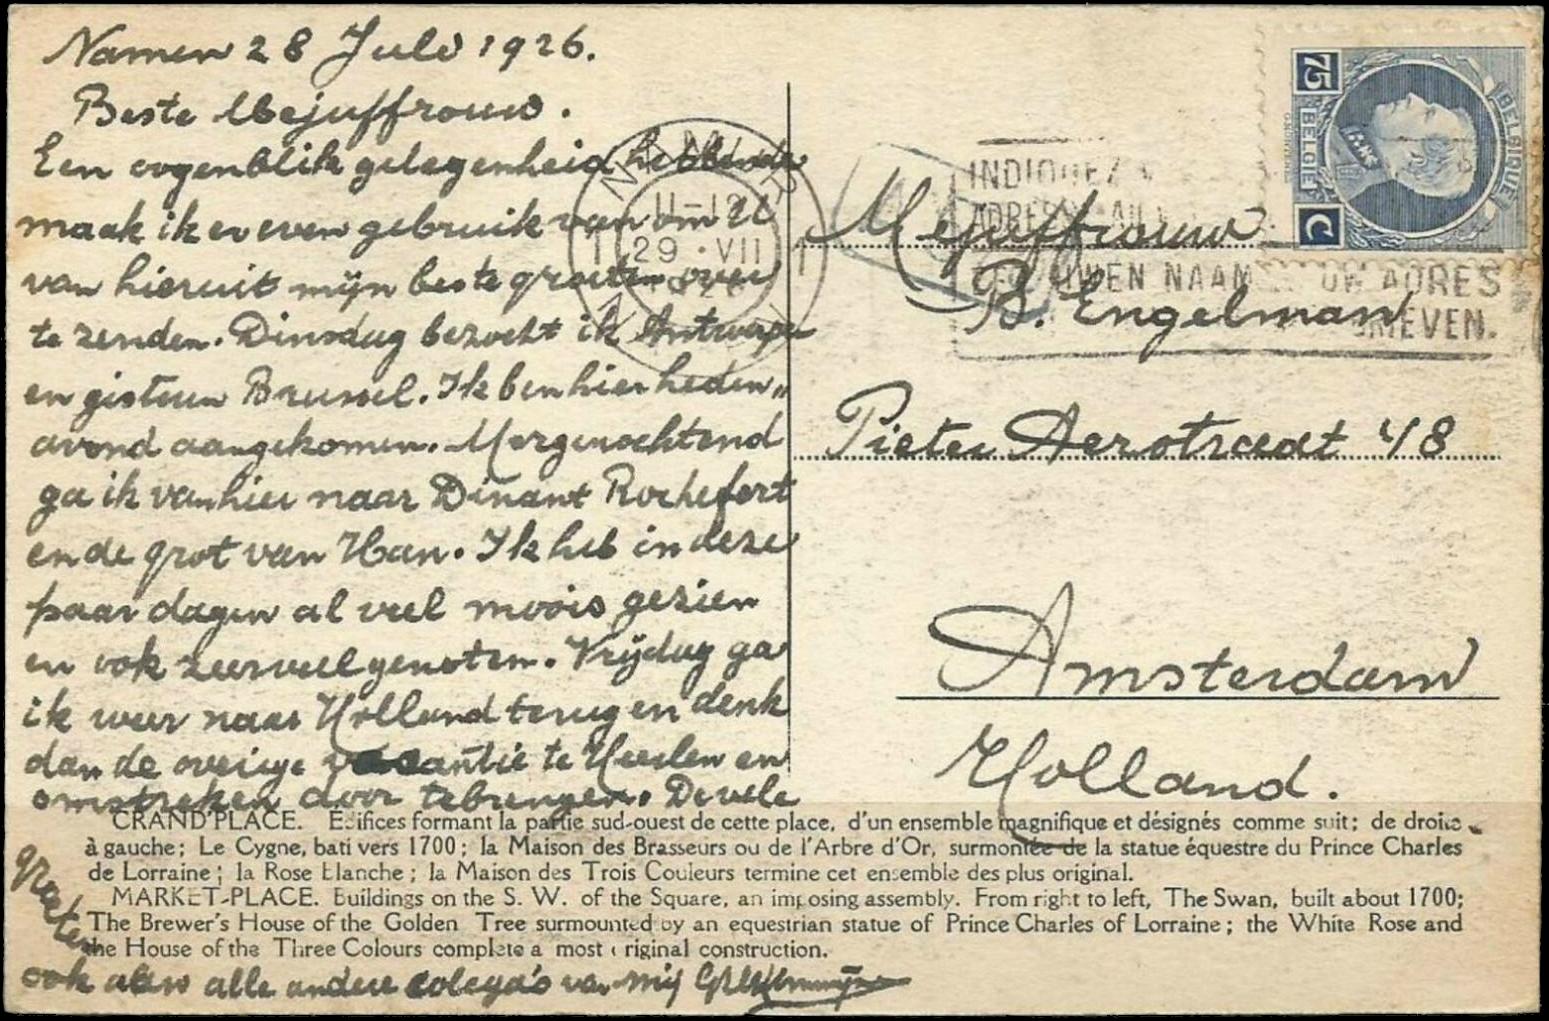 Namen 28 Juli 1926.
Beste Mejuffrouw.
Een oogenblik gelegenheid hebbende
maak ik er even gebruik van om U
van hieruit mijn beste groeten over
te zenden. Dinsdag bezocht ik Antwerpen
en gisteren Brussel. Ik ben hier heden„
avond aangekomen. Morgenochtend
ga ik van hier naar Dinant Rochefort
en de grot van Han. Ik heb in deze
paar dagen al veel moois gezien
en ook zeer veel genoten. Vrijdag ga
ik weer naar Holland terug en denk
dan de overige vacantie te Heerlen en
omstreken door te brengen. De vele
groeten
ook aan alle andere colega's van mij
NAMUR
11-12
1 29 · VII 1
INDIQUEZ
ADRES
UWEN NAAM UW ADRES
BRIEVEN.
75
C
BELGIE
BELGIQUE
Mejuffrouw
B. Engelman
Pieter Aerstraat 48
Amsterdam
Holland.
GRAND'PLACE. Édifices formant la partie sud-ouest de cette place, d'un ensemble magnifique et désignés comme suit; de droite
à gauche; Le Cygne, bati vers 1700; la Maison des Brasseurs ou de l'Arbre d'Or, surmontée de la statue équestre du Prince Charles
de Lorraine; la Rose blanche; la Maison des Trois Couleurs termine cet ensemble des plus original.
MARKET-PLACE. Buildings on the S. W. of the Square, an imposing assembly. From right to left, The Swan, built about 1700;
The Brewer's House of the Golden Tree surmounted by an equestrian statue of Prince Charles of Lorraine; the White Rose and
the House of the Three Colours complete a most original construction.